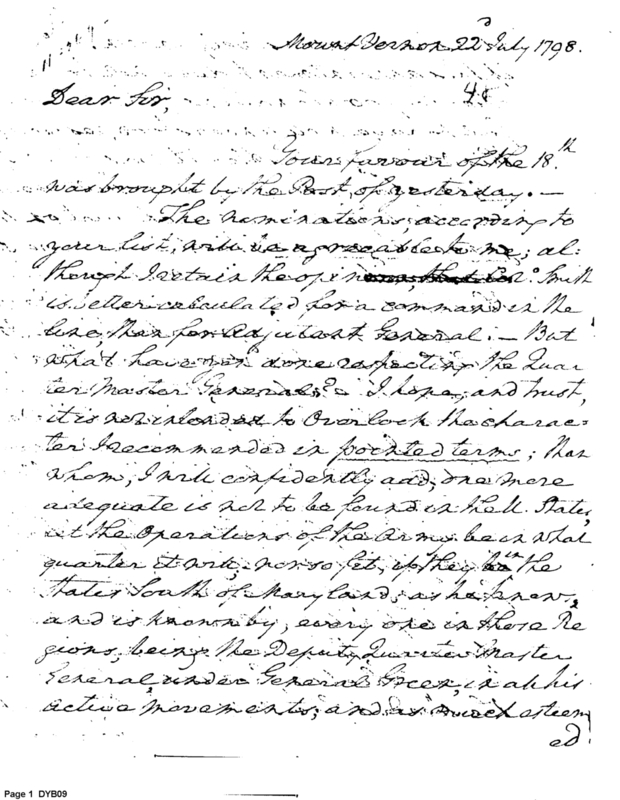 Mount Vernon 22d July 1798.
Dear Sir,
Your favour of the 18th
was brought by the Post of yesterday. —
The nominations, according to
your list, will be agreeable to me; al-
though I retain the opinion, that Colo. Smith
is better calculated for a command in the
line, than for Adjutant General. — But
what have you done respecting the Quar
ter Master General? — I hope, and trust,
it is not intended to Overlook the charac-
ter I recommended in pointed terms; than
whom, I will confidently add, one more
adequate is not to be found in the U. States,
let the Operations of the Army be in what
quarter it will; nor so fit, if they be in the
States South of Maryland; as he knows,
and is known by, every one in those Re
gions; being the Deputy Quarter Master
General, under General Green, in all his
active movements; and as much esteem
ed
Page 1 DYB09